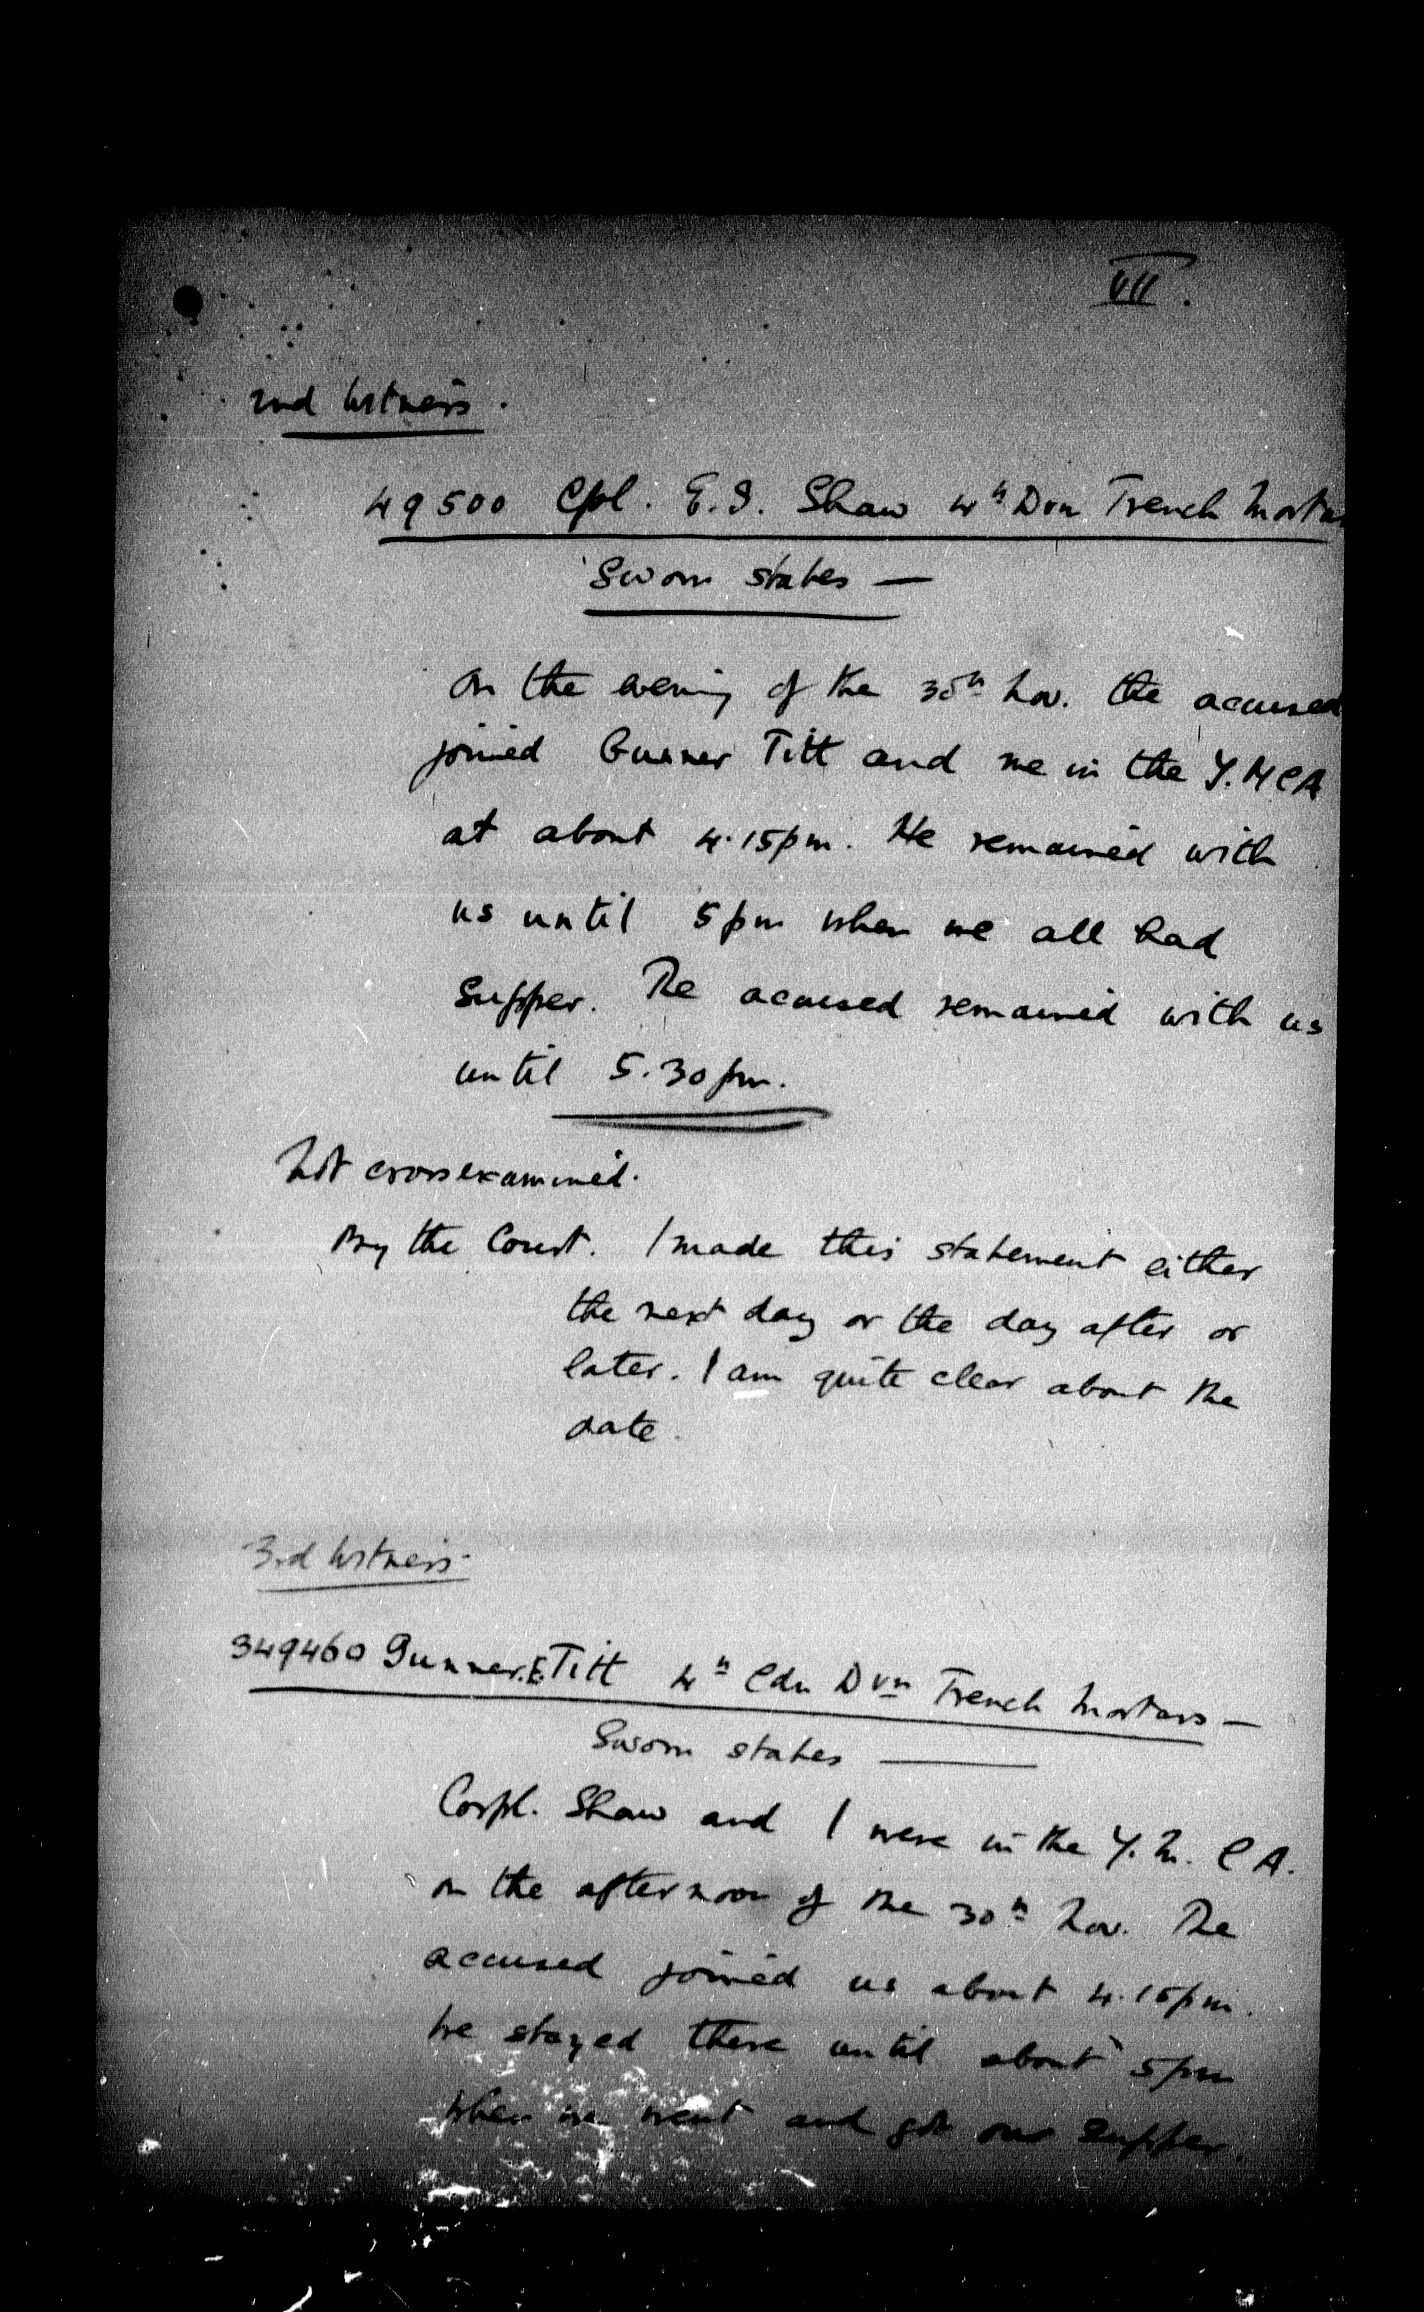 VII.
2nd Witness.
49500 Cpl. E.S. Shaw 4th Dvn Trench Mortars
Sworn states —
On the evening of the 30th Nov. the accused
joined Gunner Titt and me in the Y.M.C.A
at about 4.15pm. He remained with
us until 5pm when we all had
supper. The accused remained with us
until 5.30pm.
Not crossexamined.
By the Court. I made this statement either
the next day or the day after or
later. I am quite clear about the
date.
3rd Witness.
349460 Gunner. E. Titt 4th Cdn Dvn Trench Mortars —
Sworn states —
Corpl. Shaw and I were in the Y.M.C.A.
on the afternoon of the 30th Nov. The
accused joined us about 4.15pm.
he stayed there until about 5pm
when we went and got our supper.